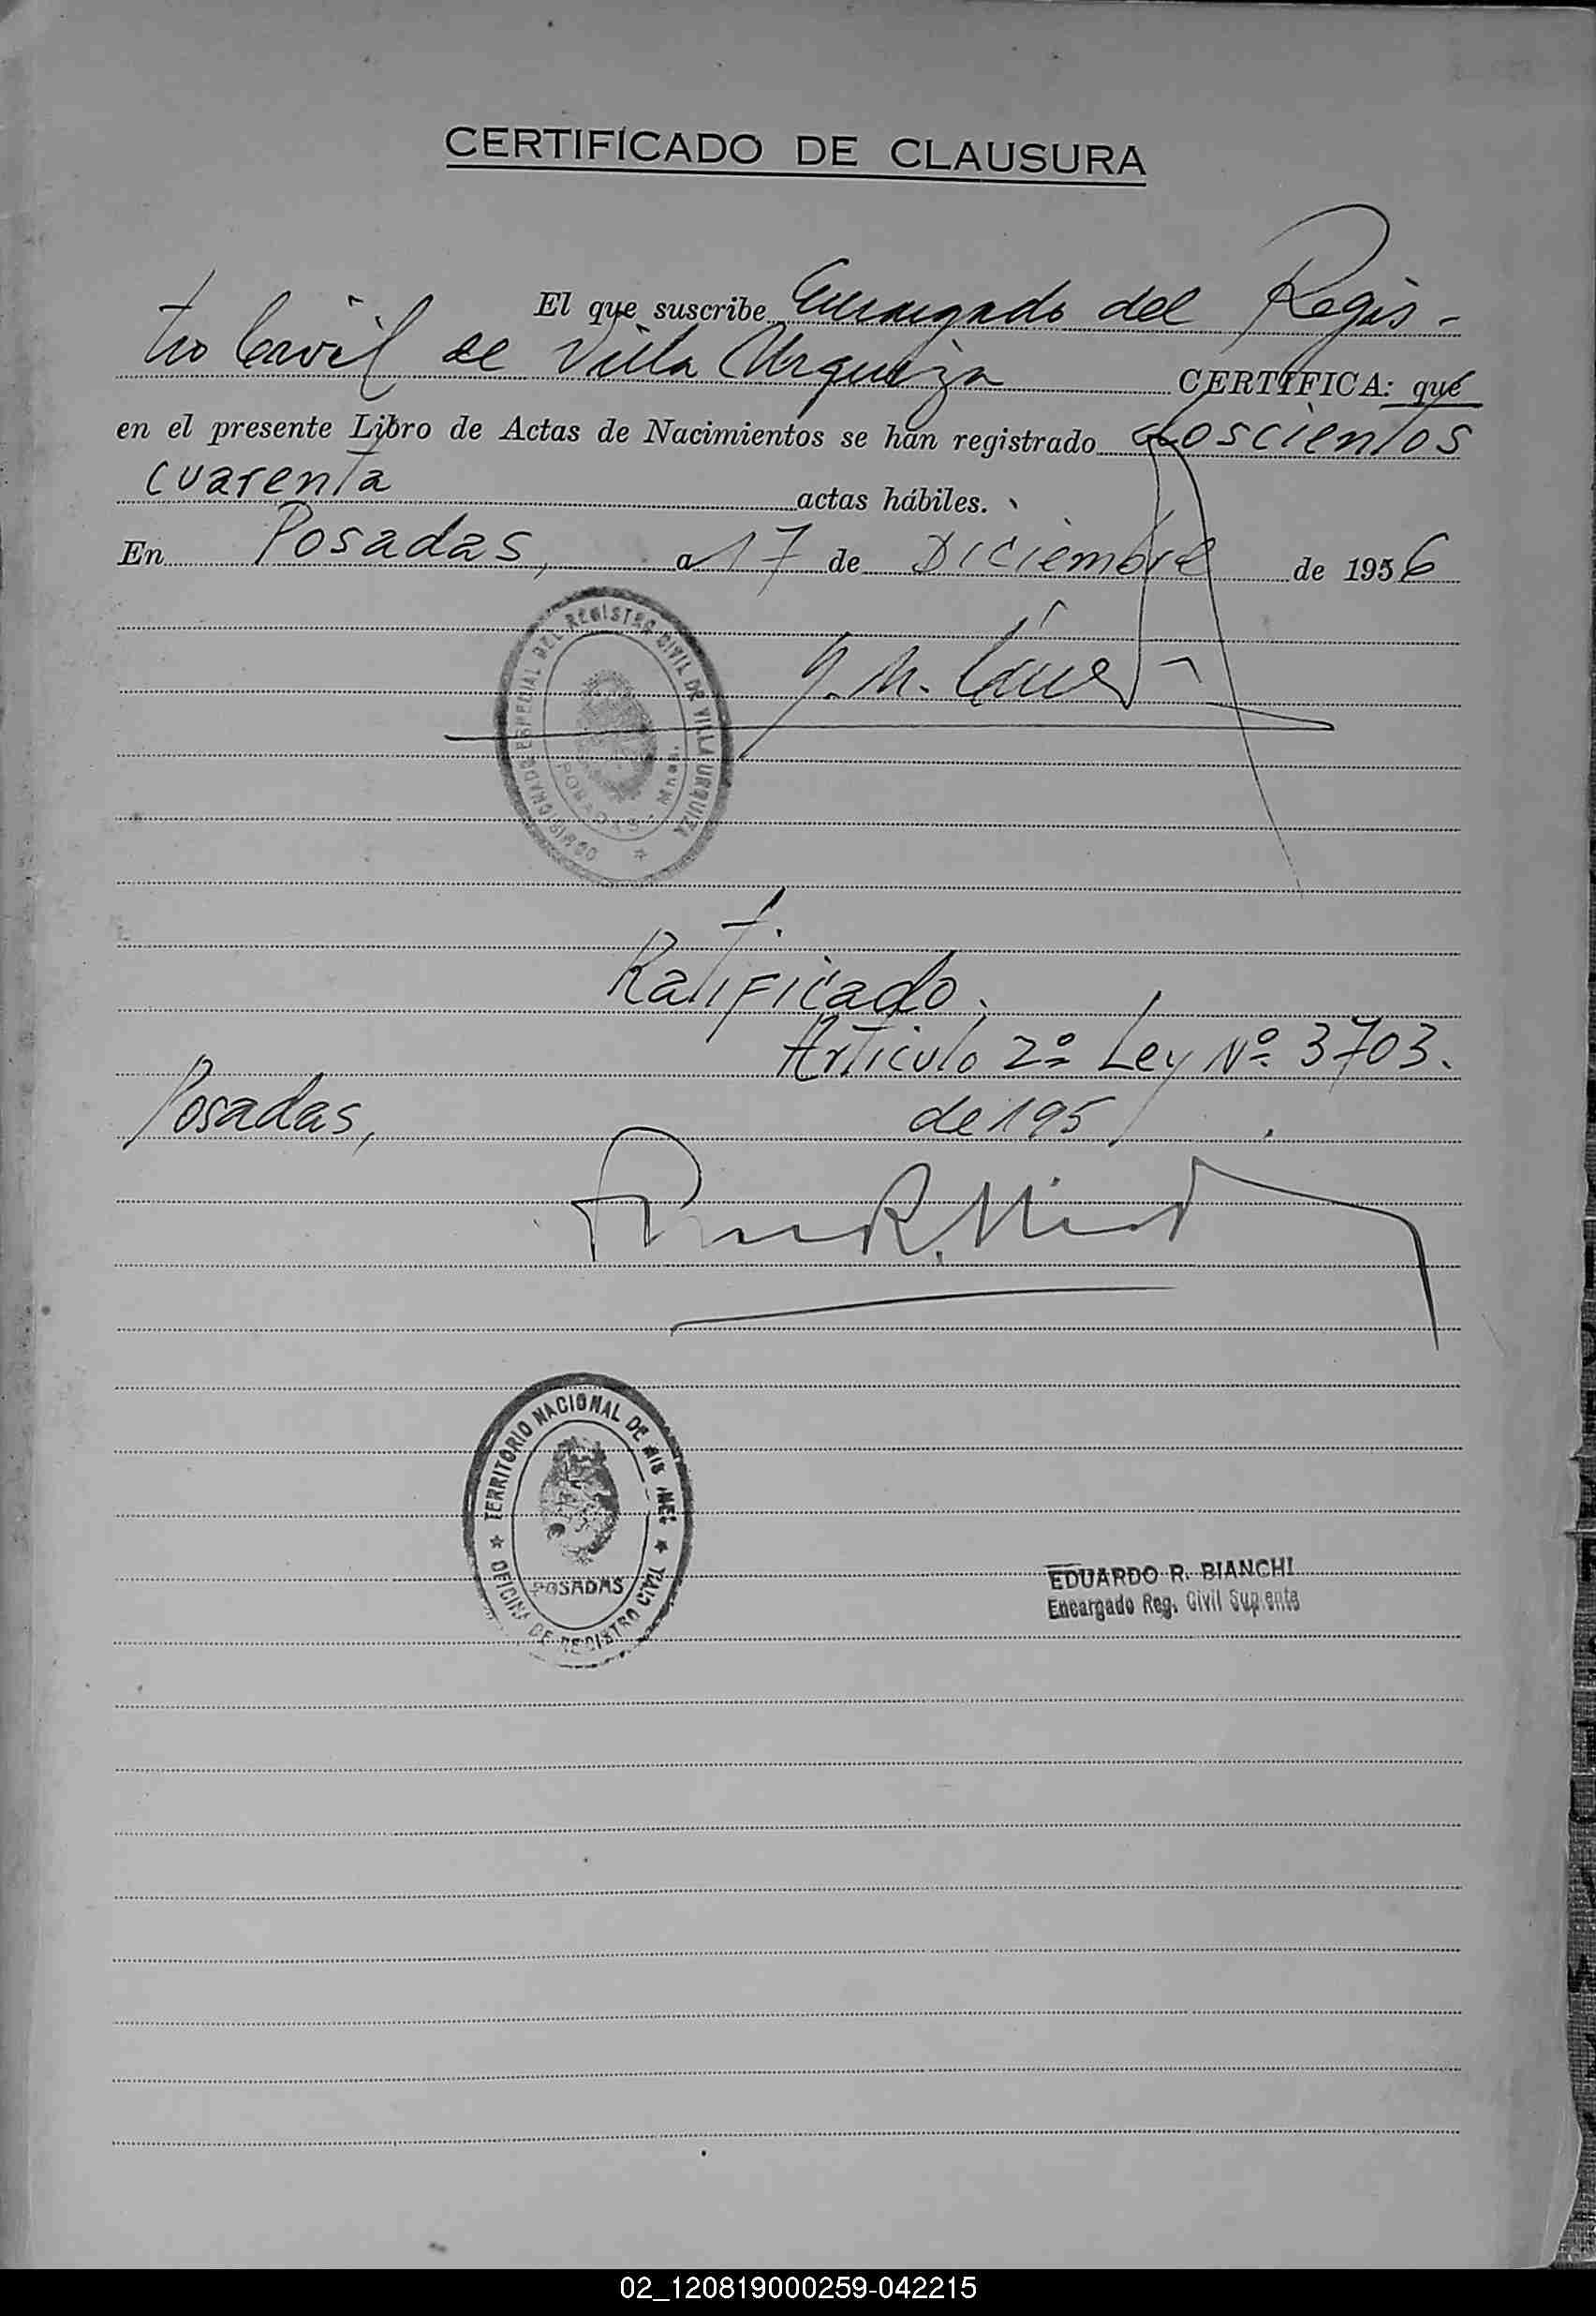 CERTIFICADO DE CLAUSURA
El que suscribe Encargado del Regis-
tro Civil de Villa Urquiza CERTIFICA: que
en el presente Libro de Actas de Nacimientos se han registrado doscientos
cuarenta actas hábiles.
En Posadas, a 17 de Diciembre de 1956
REGISTRO CIVIL DE VILLA URQUIZA
POSADAS - Mnes.
Ratificado.
Artículo 2º Ley Nº 3703.
Posadas, de 195
TERRITORIO NACIONAL DE MISIONES
POSADAS
OFICINA DE REGISTRO CIVIL
EDUARDO R. BIANCHI
Encargado Reg. Civil Suplente
02_120819000259-042215